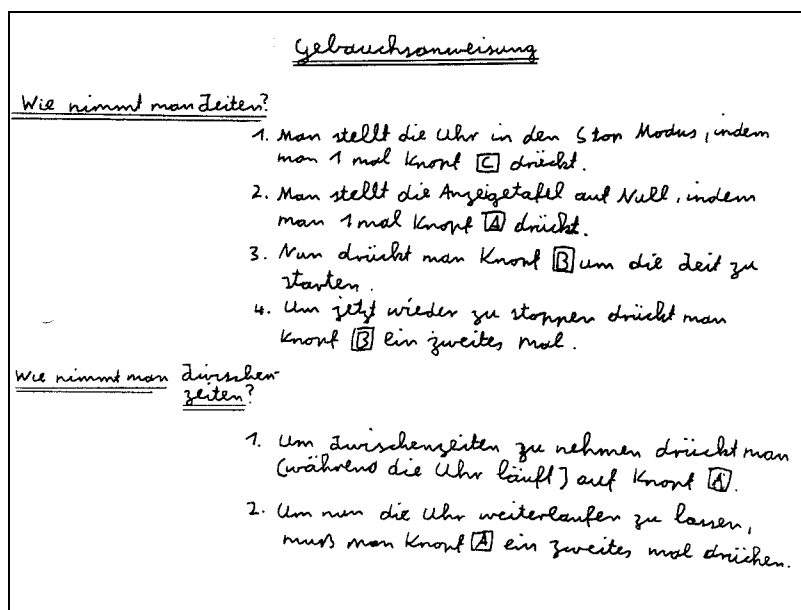 Gebauchsanweisung
Wie nimmt man Zeiten?
1. Man stellt die Uhr in den Stop Modus, indem
man 1 mal Knopf C drückt.
2. Man stellt die Anzeigetafel auf Null, indem
man 1 mal Knopf A drückt.
3. Nun drückt man Knopf B um die Zeit zu
starten.
4. Um jetzt wieder zu stoppen drückt man
Knopf B ein zweites mal.
Wie nimmt man Zwischen-
zeiten?
1. Um Zwischenzeiten zu nehmen drückt man
(während die Uhr läuft) auf Knopf A.
2. Um nun die Uhr weiterlaufen zu lassen,
muß man Knopf A ein zweites mal drücken.